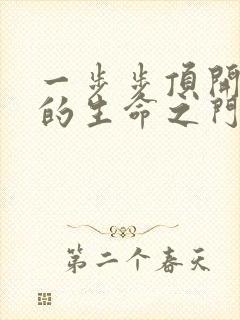 一步步頂開
的生命之門
第二个春天